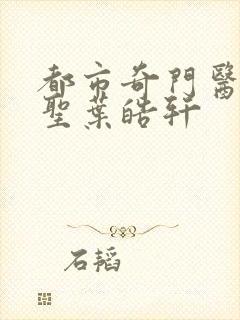 都市奇門醫
聖葉皓軒
石韜